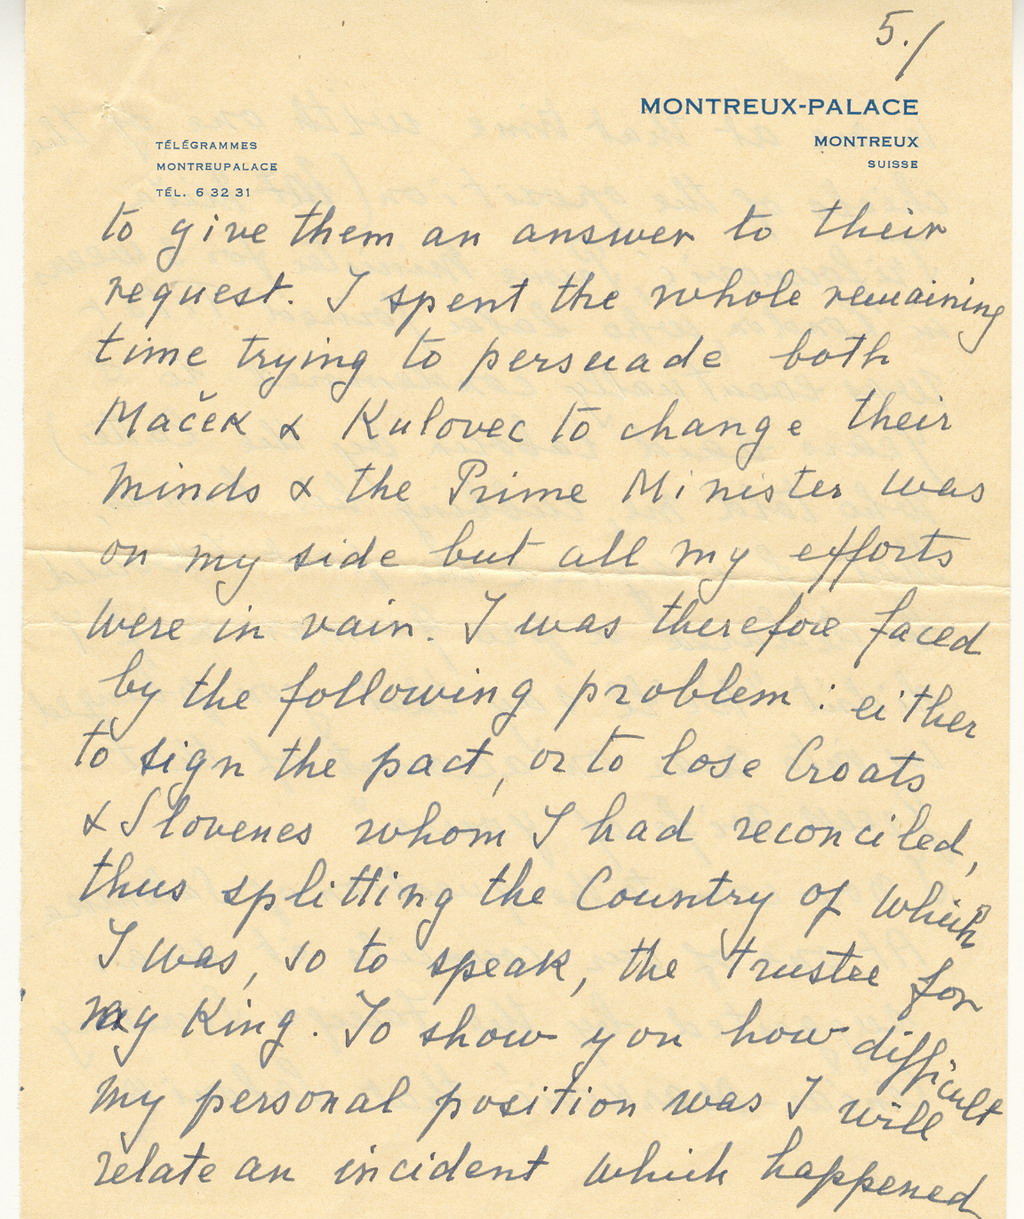 5./
MONTREUX-PALACE
MONTREUX
SUISSE
TÉLÉGRAMMES
MONTREUPALACE
TÉL. 6 32 31
to give them an answer to their
request. I spent the whole remaining
time trying to persuade both
Maček & Kulovec to change their
minds & the Prime Minister was
on my side but all my efforts
were in vain. I was therefore faced
by the following problem: either
to sign the pact, or to lose Croats
& Slovenes whom I had reconciled,
thus splitting the Country of which
I was, so to speak, the trustee for
my King. To show you how difficult
my personal position was I will
relate an incident which happened